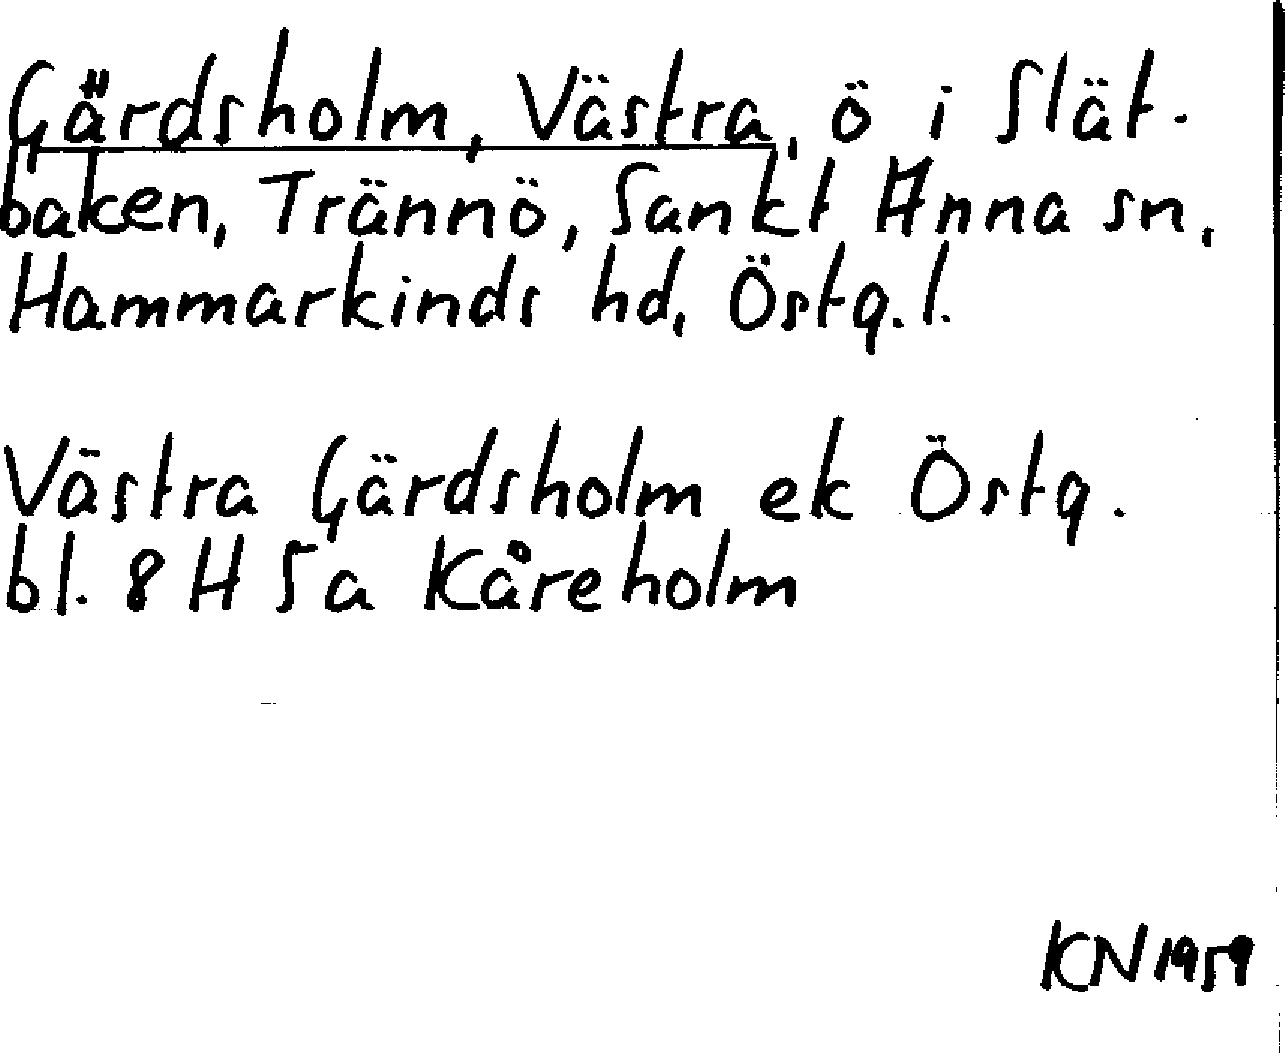 Gärdsholm, Västra, ö i Slät-
baken, Trännö, Sankt Anna sn,
Hammarkinds hd, Östg. l.
Västra Gärdsholm ek Östg.
bl. 8 H 5a Kåreholm
KN 1959